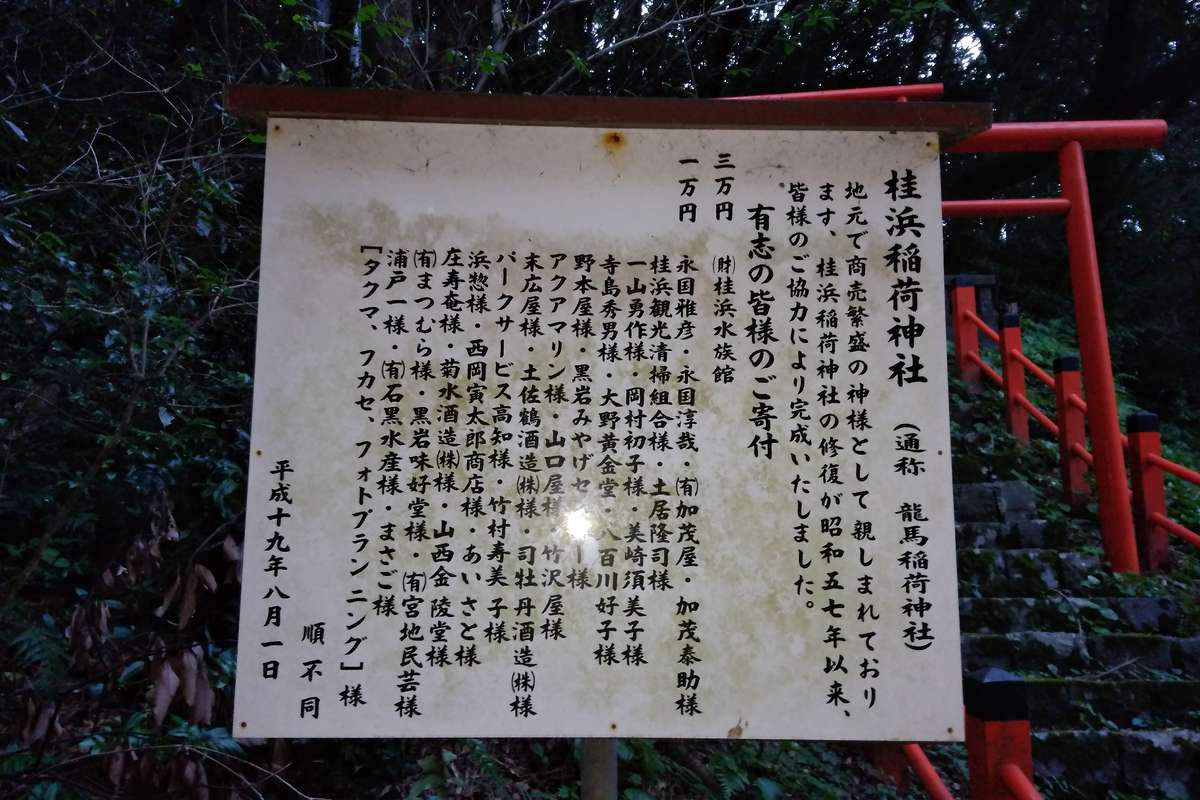 桂浜稲荷神社 (通称 龍馬稲荷神社)
地元で商売繁盛の神様として親しまれており
ます、桂浜稲荷神社の修復が昭和五七年以来、
皆様のご協力により完成いたしました。
有志の皆様のご寄付
三万円 ㈶桂浜水族館
一万円 永国雅彦・永国淳哉・㈲加茂屋・加茂泰助様
桂浜観光清掃組合様・土居隆司様
一山勇作様・岡村初子様・美崎須美子様
寺島秀男様・大野黄金堂・八百川好子様
野本屋様・黒岩みやげセ 様
アクアマリン様・山口屋様・竹沢屋様
末広屋様・土佐鶴酒造㈱様・司牡丹酒造㈱様
パークサービス高知様・竹村寿美子様
浜惣様・西岡寅太郎商店様・あいさと様
庄寿奄様・菊水酒造㈱様・山西金陵堂様
㈲まつむら様・黒岩味好堂様・㈲宮地民芸様
浦戸一様・㈲石黒水産様・まさご様
[タクマ、フカセ、フォトプランニング]様
順不同
平成十九年八月一日